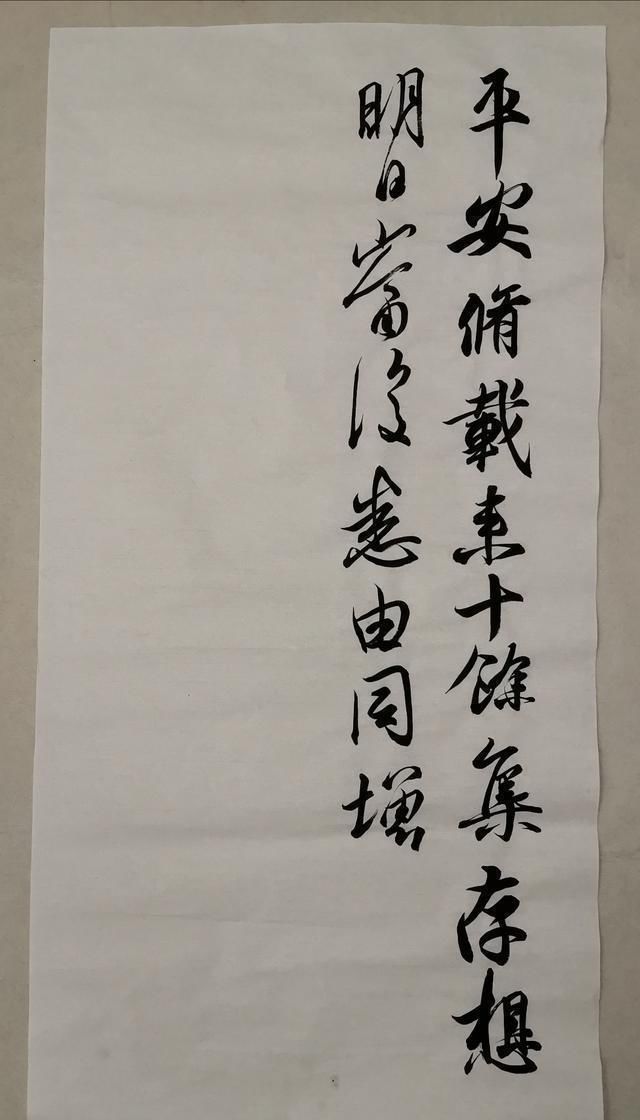 平安脩載来十餘集存想
明日當復悉由同增